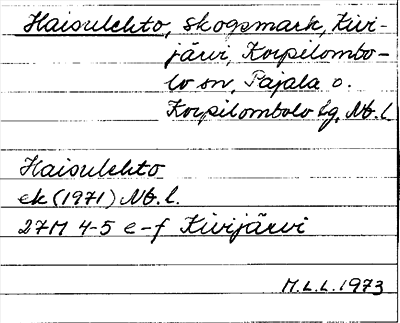 Haisulehto, skogsmark, Kivi-
järvi, Korpilombo-
lo sn, Pajala o.
Korpilombolo tg, Nb. l.
Haisulehto
ek (1971) Nb. l.
27M 4-5 e-f Kivijärvi
M.L.L. 1973